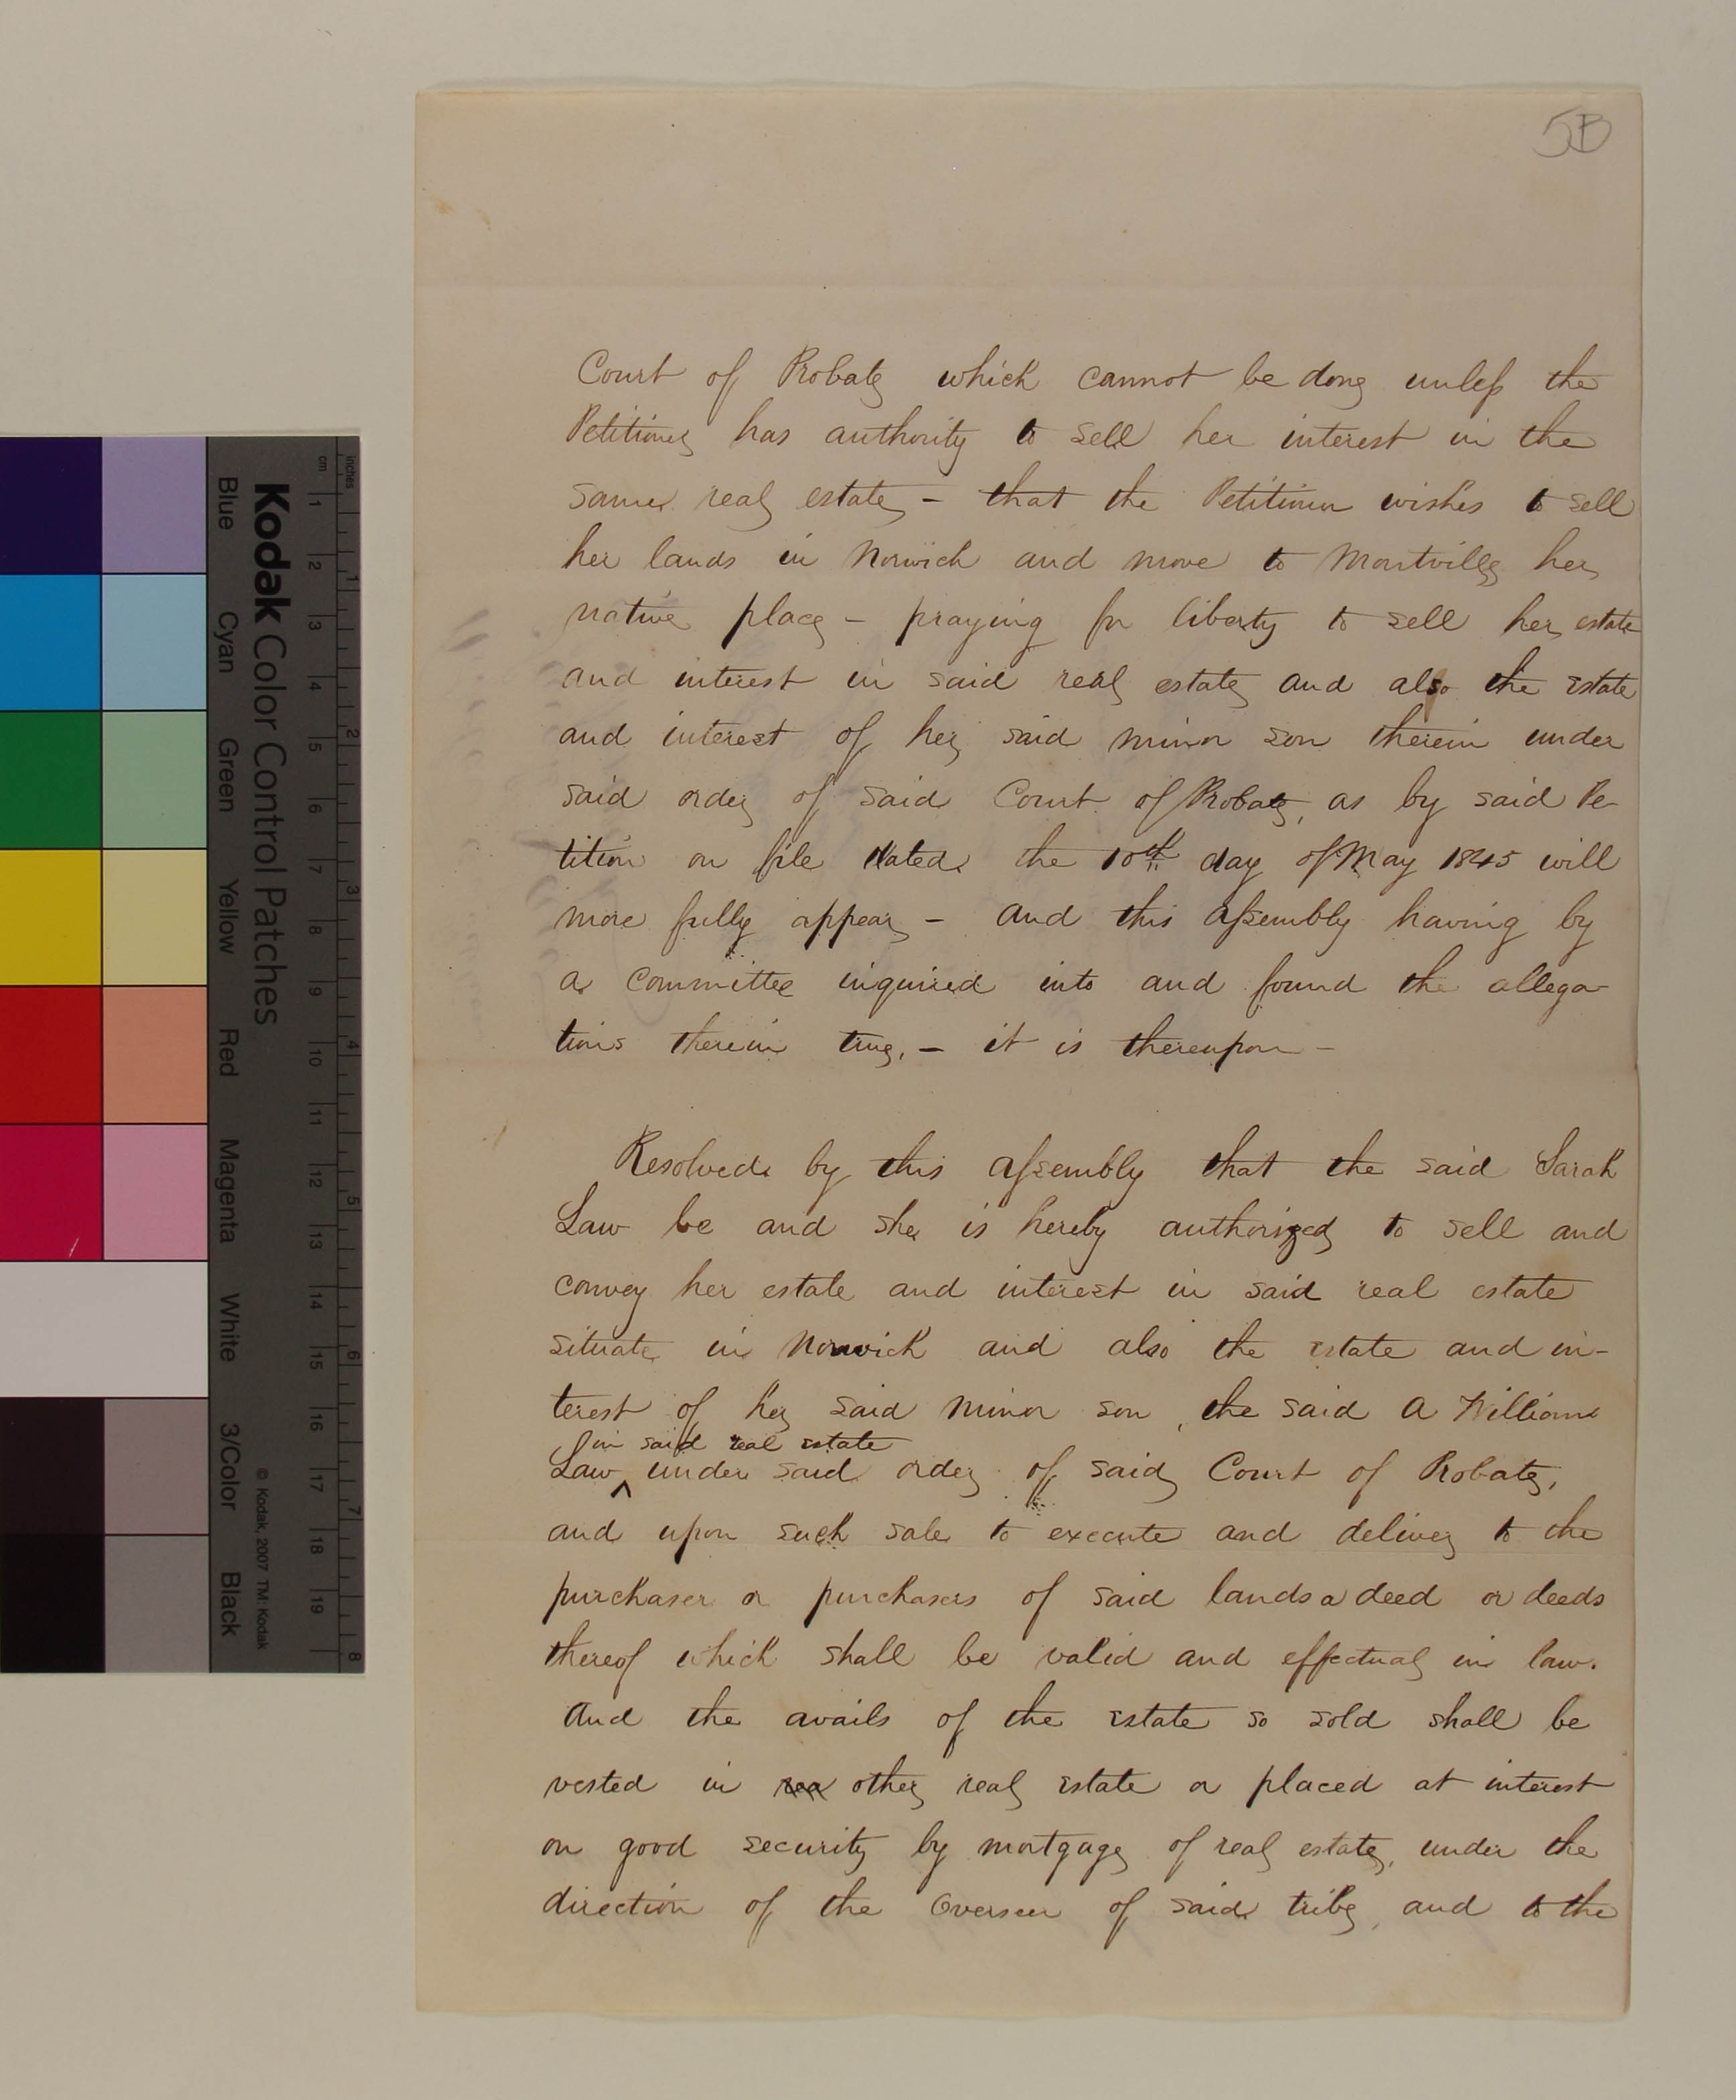 5B
Court of Probate which cannot be done unless the
Petitioner has authority to sell her interest in the
same real estate – that the Petitioner wishes to sell
her lands in Norwich and move to Montville her
native place – praying for liberty to sell her estate
and interest in said real estate and also the estate
and interest of her said minor son therein under
said order of said Court of Probate, as by said Pe-
tition on file dated the 10th day of May 1845 will
more fully appear – and this assembly having by
a Committee inquired into and found the allega-
tions therein true, – it is thereupon –
Resolved by this assembly that the said Sarah
Law be and she is hereby authorized to sell and
convey her estate and interest in said real estate
situate in Norwich and also the estate and in-
terest of her said minor son, the said A William
in said real estate
Law ^ under said order of said Court of Probate,
and upon such sale to execute and deliver to the
purchaser or purchasers of said lands a deed or deeds
thereof which shall be valid and effectual in law.
And the avails of the estate so sold shall be
vested in rea other real estate or placed at interest
on good security by mortgage of real estate, under the
direction of the Overseer of said tribe, and to the
Kodak Color Control Patches
Blue Cyan Green Yellow Red Magenta White 3/Color Black
© Kodak, 2007 TM: Kodak
cm 1 2 3 4 5 6 7 8 9 10 11 12 13 14 15 16 17 18 19
inches 1 2 3 4 5 6 7 8